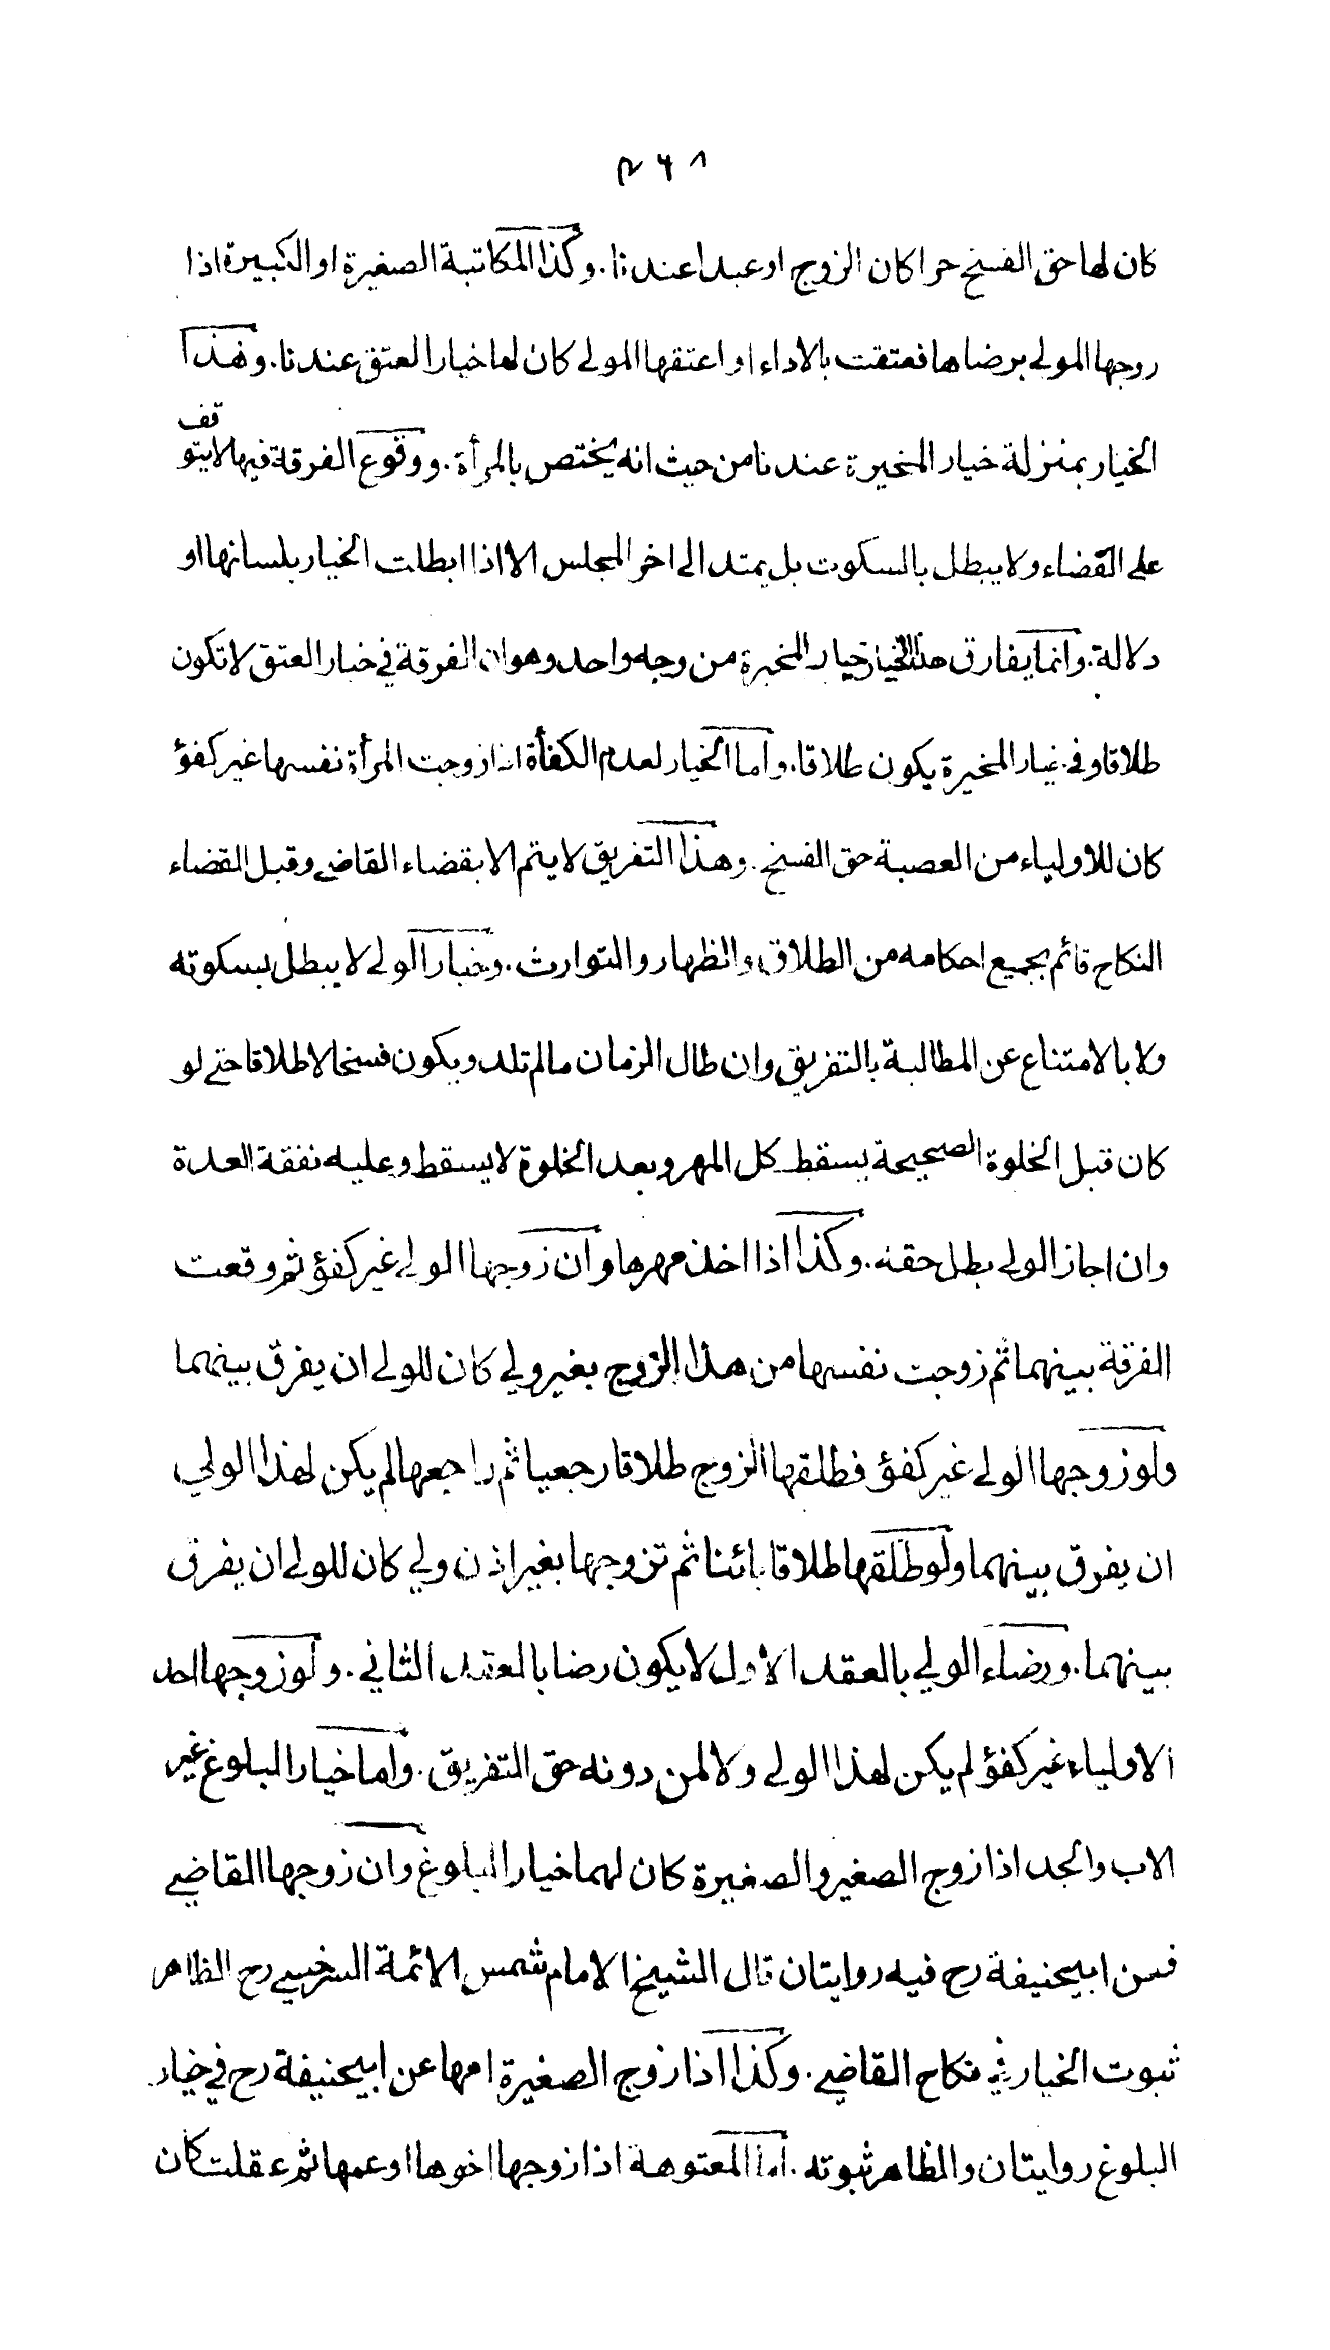 ٢٦٨
كان لها حق الفسخ حرا كان الزوج او عبدا عندنا. وكذا المكاتبة الصغيرة او الكبيرة اذا
زوجها المولى برضاها فعتقت بالاداء او اعتقها المولى كان لها خيار العتق عندنا. وهذا
الخيار بمنزلة خيار المخيرة عندنا من حيث انه يختص بالمرأة. ووقوع الفرقة فيها لا يتوقف
على القضاء ولا يبطل بالسكوت بل يمتد الى اخر المجلس الا اذا ابطلت الخيار بلسانها او
دلالة. وانما يفارق هذا الخيار خيار المخيرة من وجه واحد وهو ان الفرقة في خيار العتق لا تكون
طلاقا وفي خيار المخيرة يكون طلاقا. واما الخيار لعدم الكفأة اذا زوجت المرأة نفسها غير كفؤ
كان للاولياء من العصبة حق الفسخ. وهذا التفريق لا يتم الا بقضاء القاضي وقبل القضاء
النكاح قائم بجميع احكامه من الطلاق والظهار والتوارث. وخيار الولي لا يبطل بسكوته
ولا بالامتناع عن المطالبة بالتفريق وان طال الزمان مالم تلد ويكون فسخا لا طلاقا حتى لو
كان قبل الخلوة الصحيحة يسقط كل المهر وبعد الخلوة لا يسقط وعليه نفقة العدة
وان اجاز الولي بطل حقه. وكذا اذا اخذ مهرها وان زوجها الولي غير كفؤ ثم وقعت
الفرقة بينهما ثم زوجت نفسها من هذا الزوج بغير ولي كان للولي ان يفرق بينهما
ولو زوجها الولي غير كفؤ فطلقها الزوج طلاقا رجعيا ثم راجعها لم يكن لهذا الولي
ان يفرق بينهما ولو طلقها طلاقا بائنا ثم تزوجها بغير اذن ولي كان للولي ان يفرق
بينهما. ورضاء الولي بالعقد الاول لا يكون رضا بالعقد الثاني. ولو زوجها احد
الاولياء غير كفؤ لم يكن لهذا الولي ولا لمن دونه حق التفريق. واما خيار البلوغ غير
الاب والجد اذا زوج الصغير والصغيرة كان لهما خيار البلوغ وان زوجها القاضي
فعن ابيحنيفة رح فيه روايتان قال الشيخ الامام شمس الائمة السرخسي رح الظاهر
ثبوت الخيار في نكاح القاضي. وكذا اذا زوج الصغيرة امها عن ابيحنيفة رح في خيار
البلوغ روايتان والظاهر ثبوته. اما المعتوهة اذا زوجها اخوها او عمها ثم عقلت كان